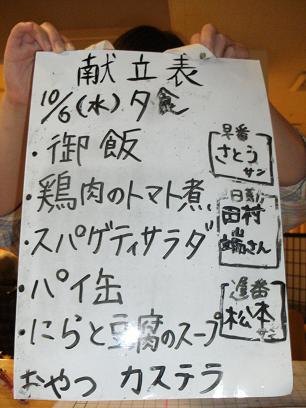 献立表
10/6(水)夕食
・御飯
・鶏肉のトマト煮
・スパゲティサラダ
・パイ缶
・にらと豆腐のスープ
おやつ カステラ
早番
さとう
サン
日勤
田村
さん
遅番
松本
サン